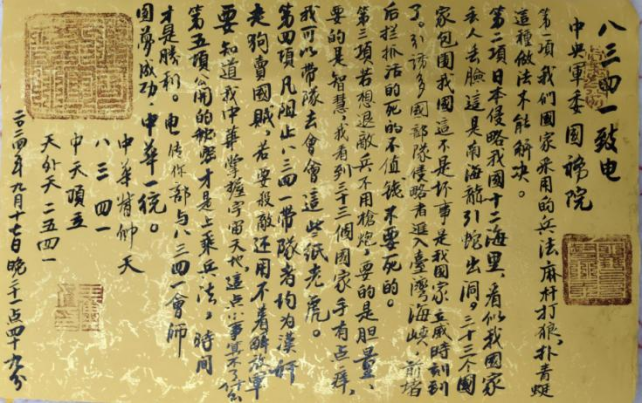 八三四一致电
中央軍委國務院
第一項我們國家采用的兵法麻杆打狼,扑青蜓
這種做法不能解决。
第二項日本侵略我國十二海里,看似我國家
丢人丢臉這是南海龍引蛇出洞。三十三个國
家包围我國這不是坏事是我國家立威時刻到
了。引诱多國部隊侵略者進入臺灣海峡,前堵
后拦抓活的死的不值钱不要死的。
第三項若想退敵兵不用槍炮,要的是胆量,
要的是智慧,我看到三十三個國家手有点痒,
我可以带隊去會會這些纸老虎。
第四項凡阻止八三四一带隊者均为漢奸
走狗賣國賊,若要投敵还用不着解放軍
要知道我中華掌握宇宙天地,這点小事算不了什么
第五項公開的秘密才是上乘兵法,時間
才是勝利。电传作部与八三四一會师
圆夢成功,中華一统。
中華背仰天
八三四一
中天頭立
天外天二五四一
二〇二四年九月十七日晚二十一点四十九分